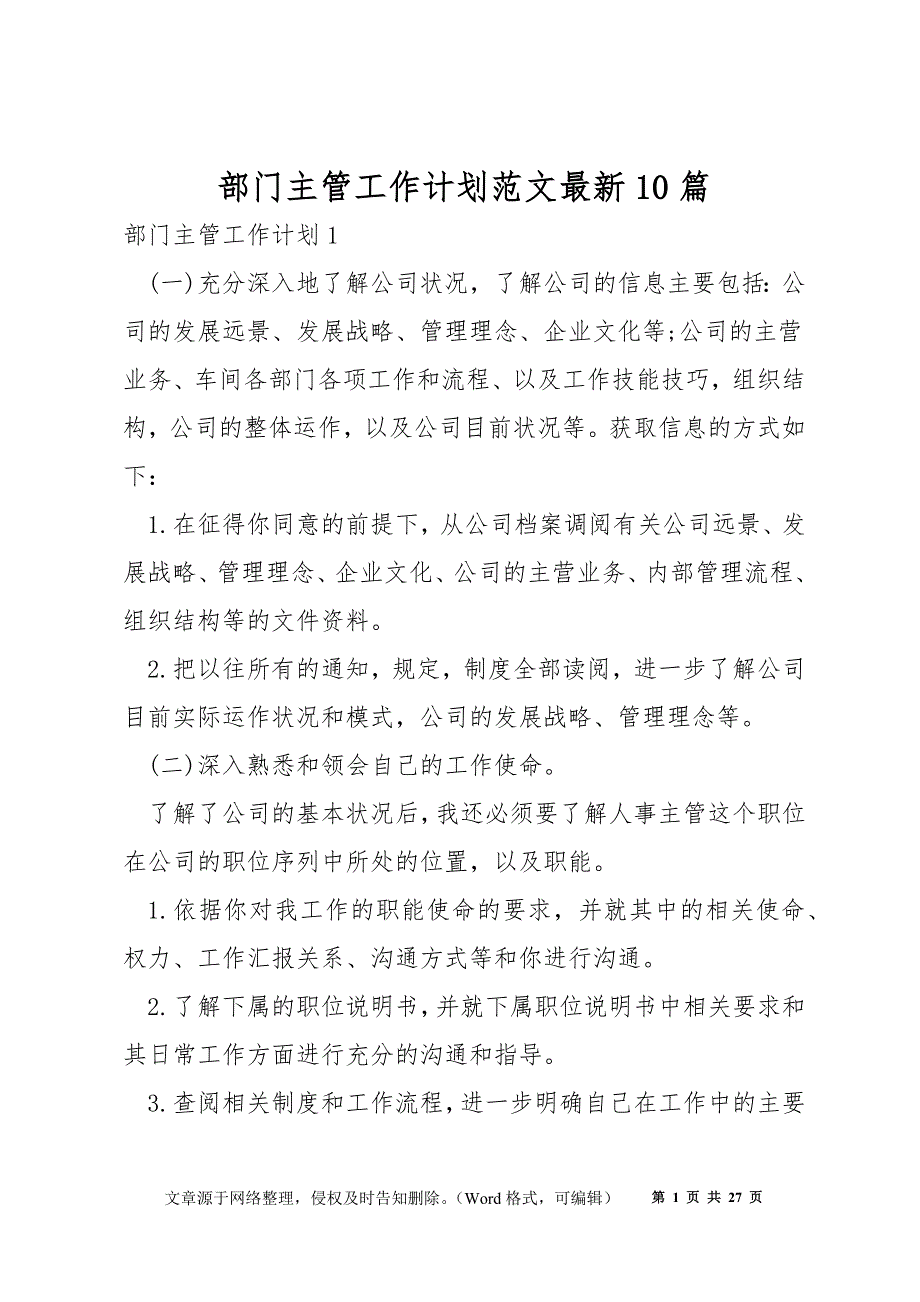 部门主管工作计划范文最新10 篇
部门主管工作计划1
(一)充分深入地了解公司状况，了解公司的信息主要包括：公
司的发展远景、发展战略、管理理念、企业文化等;公司的主营
业务、车间各部门各项工作和流程、以及工作技能技巧，组织结
构，公司的整体运作，以及公司目前状况等。获取信息的方式如
下：
1.在征得你同意的前提下，从公司档案调阅有关公司远景、发
展战略、管理理念、企业文化、公司的主营业务、内部管理流程、
组织结构等的文件资料。
2.把以往所有的通知，规定，制度全部读阅，进一步了解公司
目前实际运作状况和模式，公司的发展战略、管理理念等。
(二)深入熟悉和领会自己的工作使命。
了解了公司的基本状况后，我还必须要了解人事主管这个职位
在公司的职位序列中所处的位置，以及职能。
1.依据你对我工作的职能使命的要求，并就其中的相关使命、
权力、工作汇报关系、沟通方式等和你进行沟通。
2.了解下属的职位说明书，并就下属职位说明书中相关要求和
其日常工作方面进行充分的沟通和指导。
3.查阅相关制度和工作流程，进一步明确自己在工作中的主要
文章源于网络整理，侵权及时告知删除。（Word 格式，可编辑） 第 1 页 共 27 页